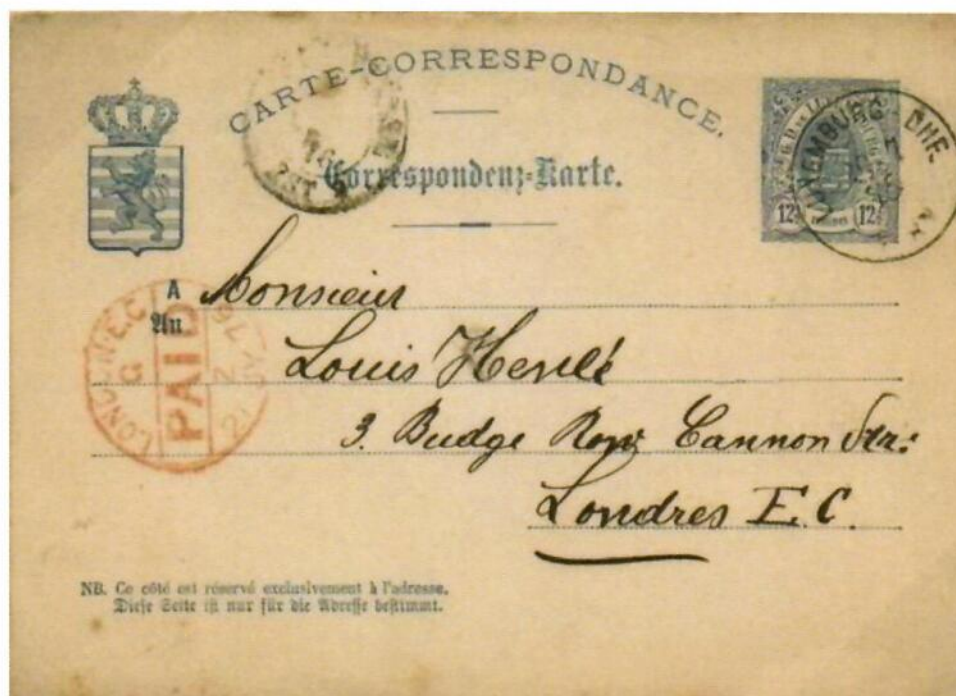 CARTE-CORRESPONDANCE.
Correspondenz-Karte.
LUXEMBURG BHF.
12½ 12½
A
An
Monsieur
Louis Henlé
3. Budge Row Cannon Str:
Londres E.C.
LONDON·E.C
PAID
76
NB. Ce côté est réservé exclusivement à l'adresse.
Diese Seite ist nur für die Adresse bestimmt.